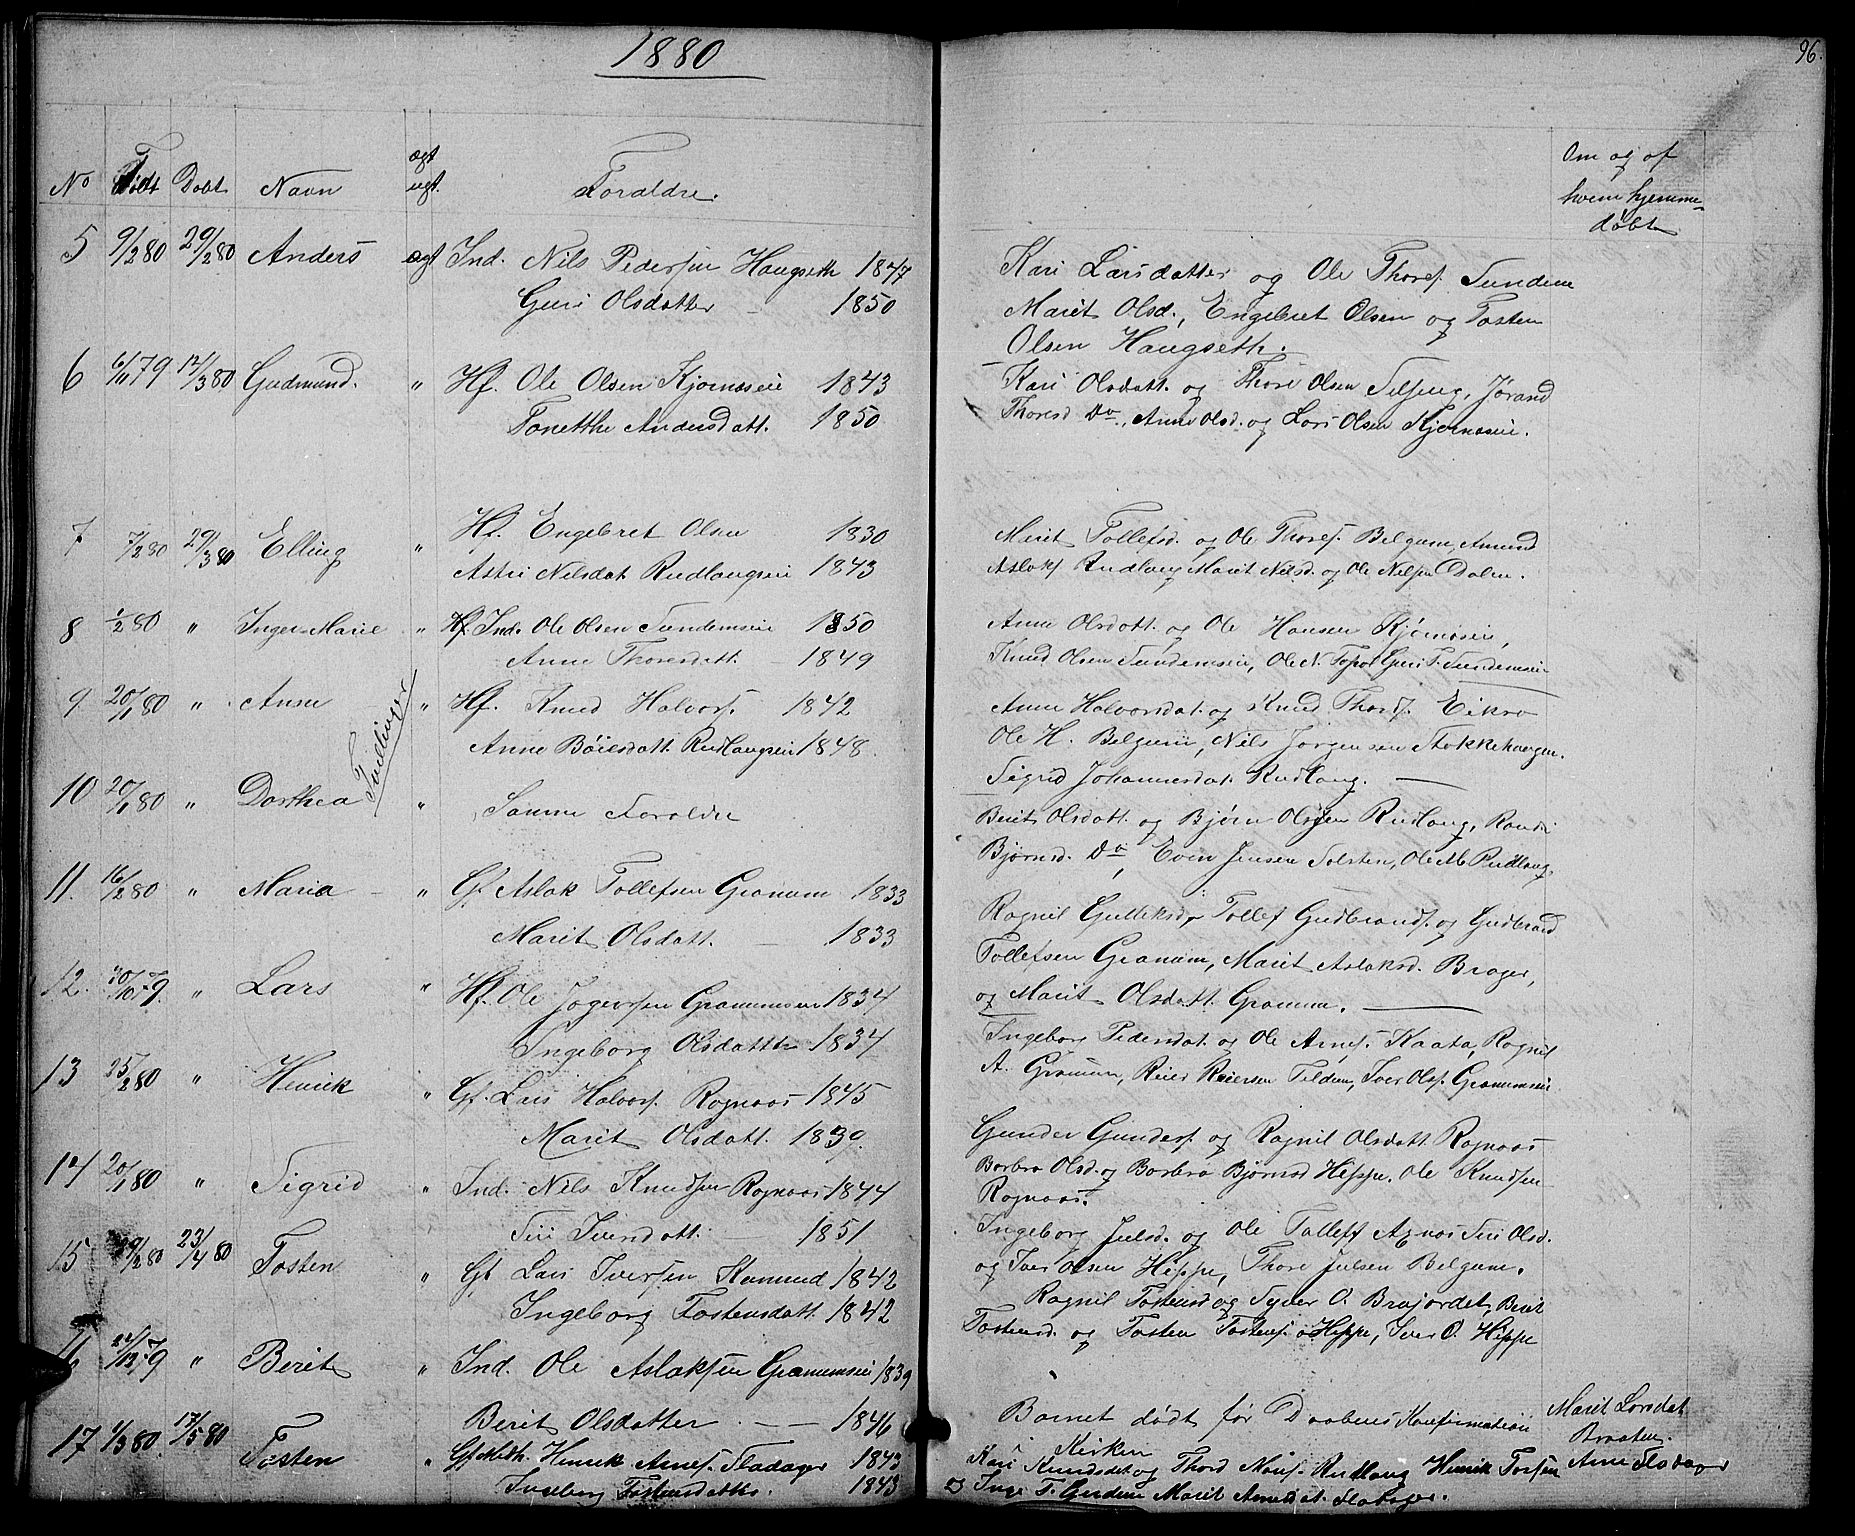 1880
96.
No Födt Dobt Navn ægt ugt. Foraldre. Om og af hvem hjemme-döbt
5 9/2 80 29/2 80 Anders ægt Ind. Nils Pedersen Haugseth 1847
Guri Olsdatter - 1850
Kari Larsdatter og Ole Thores. Sundem
Marit Olsd., Engebret Olsen og Tosten
Olsen Haugseth.
6 6/11 79 12/3 80 Gudmund. " Hf. Ole Olsen Kjornæseie 1843
Tonetthe Andersdatt. 1850
Kari Olsdatt. og Thore Olsen, Jørand
Thoresd Do., Anne Olsd. og Lars Olsen Kjornæseie.
7 7/2 80 29/3 80 Elling " Hf. Engebret Olsen 1830
Astri Nilsdat Rudlangseie 1843
Marit Tollefsd. og Ole Thores. Belgum, Amund
Aslaks Rudlang Marit Nilsd. og Ole Nilsen Dalen.
8 1/2 80 " Inger Marie " Ind. Ole Olsen Sundemseie 1850
Anne Thoresdatt. - 1849
Anne Olsdatt. og Ole Hansen Kjörnöseie,
Knud Olsen Sundemseie, Ole N. Guri T. Sundemseie
9 20/1 80 " Anne " Hf. Knud Halvors. 1842
Anne Böiesdatt Rudlangseie 1848.
Tvillinger
Anne Halvorsdat. og Knud Thors. Eikro
Ole H. Belgum, Nils Jörgensen Stokkehaugen.
Sigrid Johannesdat. Rudlang.
10 20/1 80 " Dorthea " Samme Foraldre
Berit Olsdatt. og Bjørn Olsen Rudlang, Randi
Bjørnsd. Do, Even Jensen Solsten, Ole M. Rudlang.
11. 16/2 80 " Maria - " Gf Aslak Tollefsen Granum 1833
Marit Olsdatt. - 1833
Ragnil Gulleksd, Tollef Gudbrands. og Gudbrand
Tollefsen Granum, Marit Aslaksd. Brager,
og Marit Olsdatt. Granum.
12. 30/10 79. " Lars " Hf. Ole Granumseie 1834
Ingeborg Olsdatter 1834
Ingeborg Pedersdat. og Ole Arnes. Kaata, Ragnil
A. Granum, Reier Reiersen Tildem, Iver Ols. Granumseie
13 25/2 80 " Henrik " Gf. Lars Halvors. Rognaas 1845
Marit Olsdatt. 1839.
Gunder Gunders. og Ragnil Olsdatt. Rognaas
Barbro Olsd. og Barbro Björnsd Hippe. Ole Knudsen
Rognaas.
14 20/1 80 " Sigrid " Ind. Nils Knudsen Rognaas 1844
Siri Iversdatt. 1851
Ingeborg Julsd. og Ole Tollefs. Siri Olsd.
og Iver Olsen Hippe, Thore Julsen Belgum.
15 29/2 80 23/4 80 Tosten " Gf Lars Iversen 1842
Ingeborg Tostensdatt. 1842
Ragnil Tostensd og Syver O. Brajordet, Berit
Tostensd. og Tosten Tostens. Hippe, Iver O. Hippe
16 22/12 79 " Berit " Ind. Ole Aslaksen Granumseie 1839
Berit Olsdatter - 1846
Barnet dødt før Daabens Konfirmation i
Kirken
Marit Larsdat
Braaten.
17 1/3 80 17/5 80 Tosten " Gf Henrik Arnes. Fladager 1843
Ingeborg Tostensdatter. 1843
Kari Knudsdat og Thord Rudlang Henrik Tosten
og Inge T. Marit Arnesdat. Fladager.
Anne Fladager